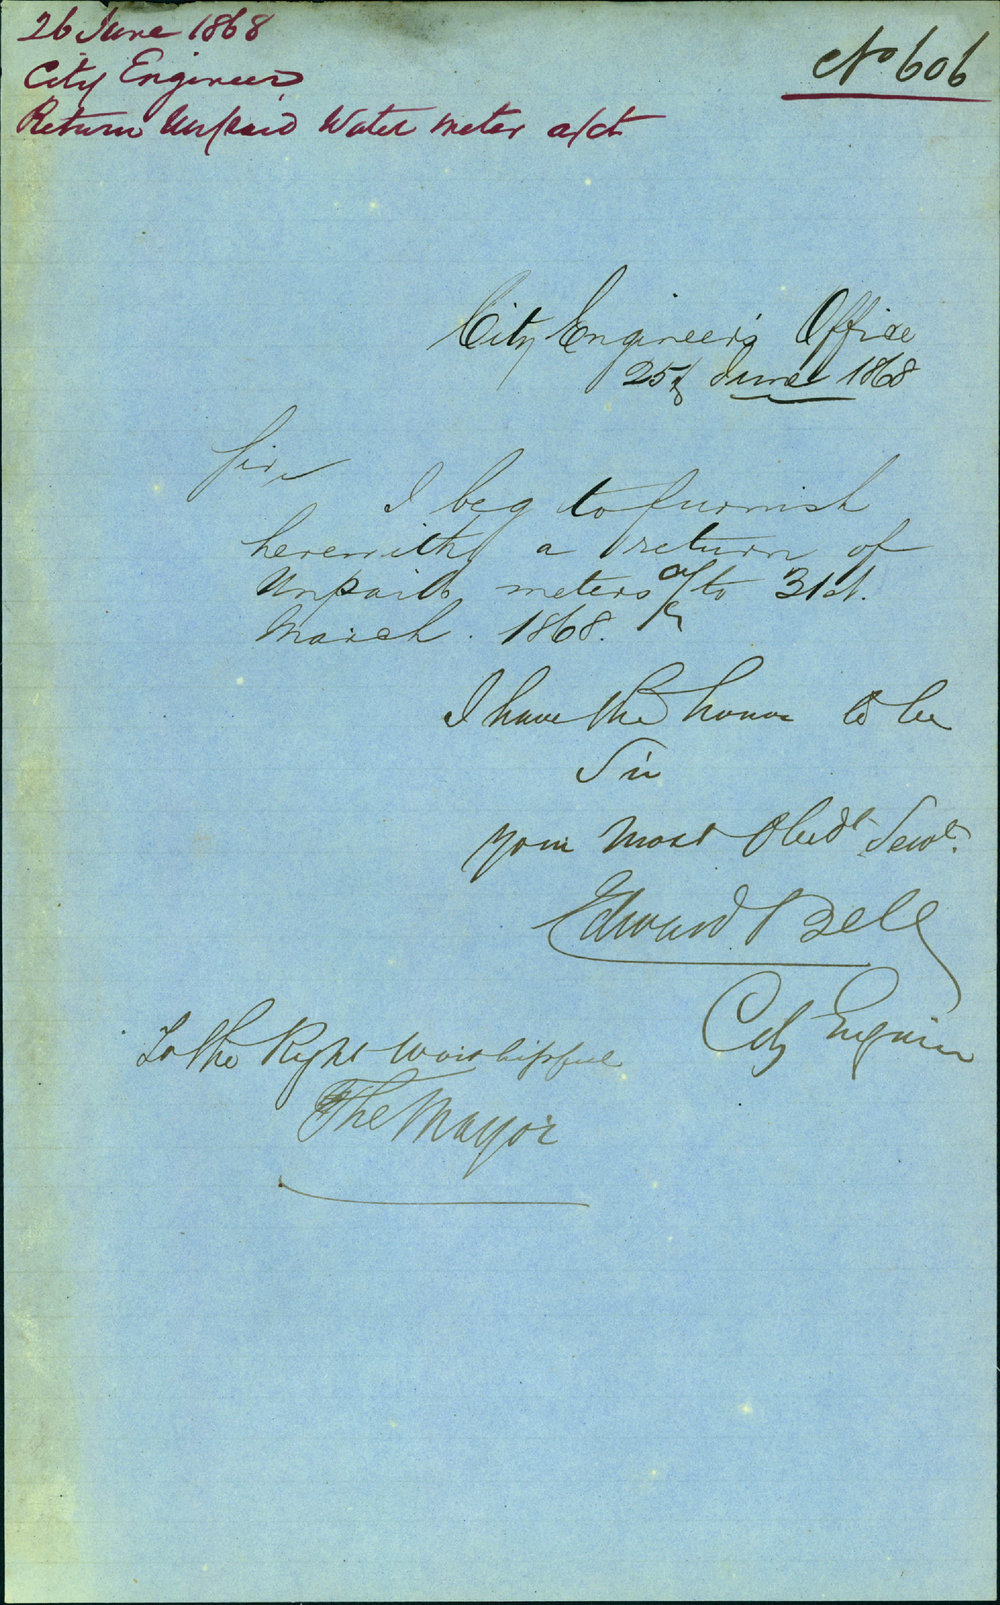 26 June 1868
City Engineer
Return Unpaid Water meter a/ct
No 606
City Engineer's Office
25th June 1868
Sir,
I beg to furnish
herewith a return of
Unpaid meters a/c to 31st.
March. 1868.
I have the honor to be
Sir
Your Most Obedt. Servt.
Edward Bell
City Engineer
To the Right Worshipful
The Mayor